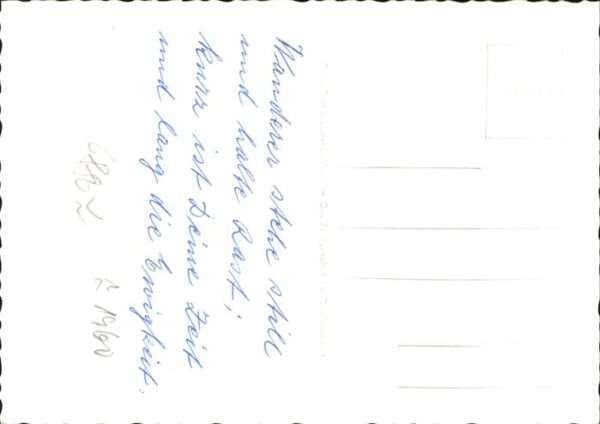 Wanderer stehe still
und halte Rast,
kurz ist Deine Zeit
und lang die Ewigkeit.
1960